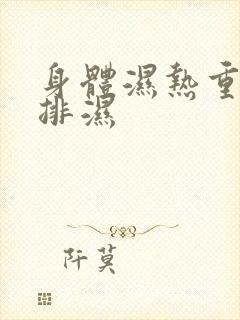 身體濕熱重
排濕
阡莫